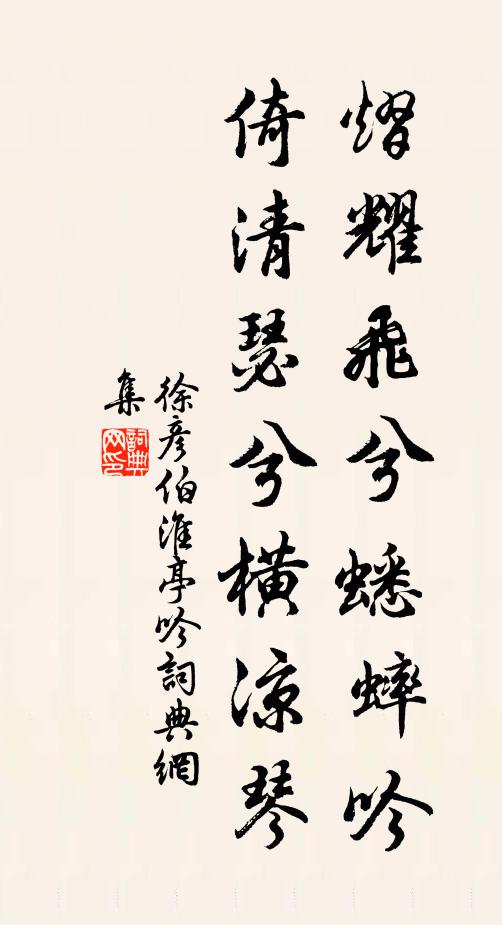 熠耀飛兮蟋蟀吟
倚清瑟兮橫涼琴
徐彦伯淮亭吟詞典網
集
詞典網印